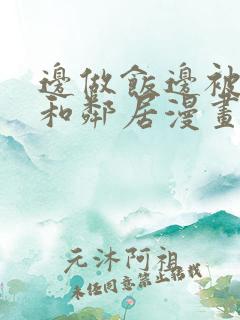 邊做飯邊被
和鄰居漫畫
元沐阿祖
未經同意禁止轉載